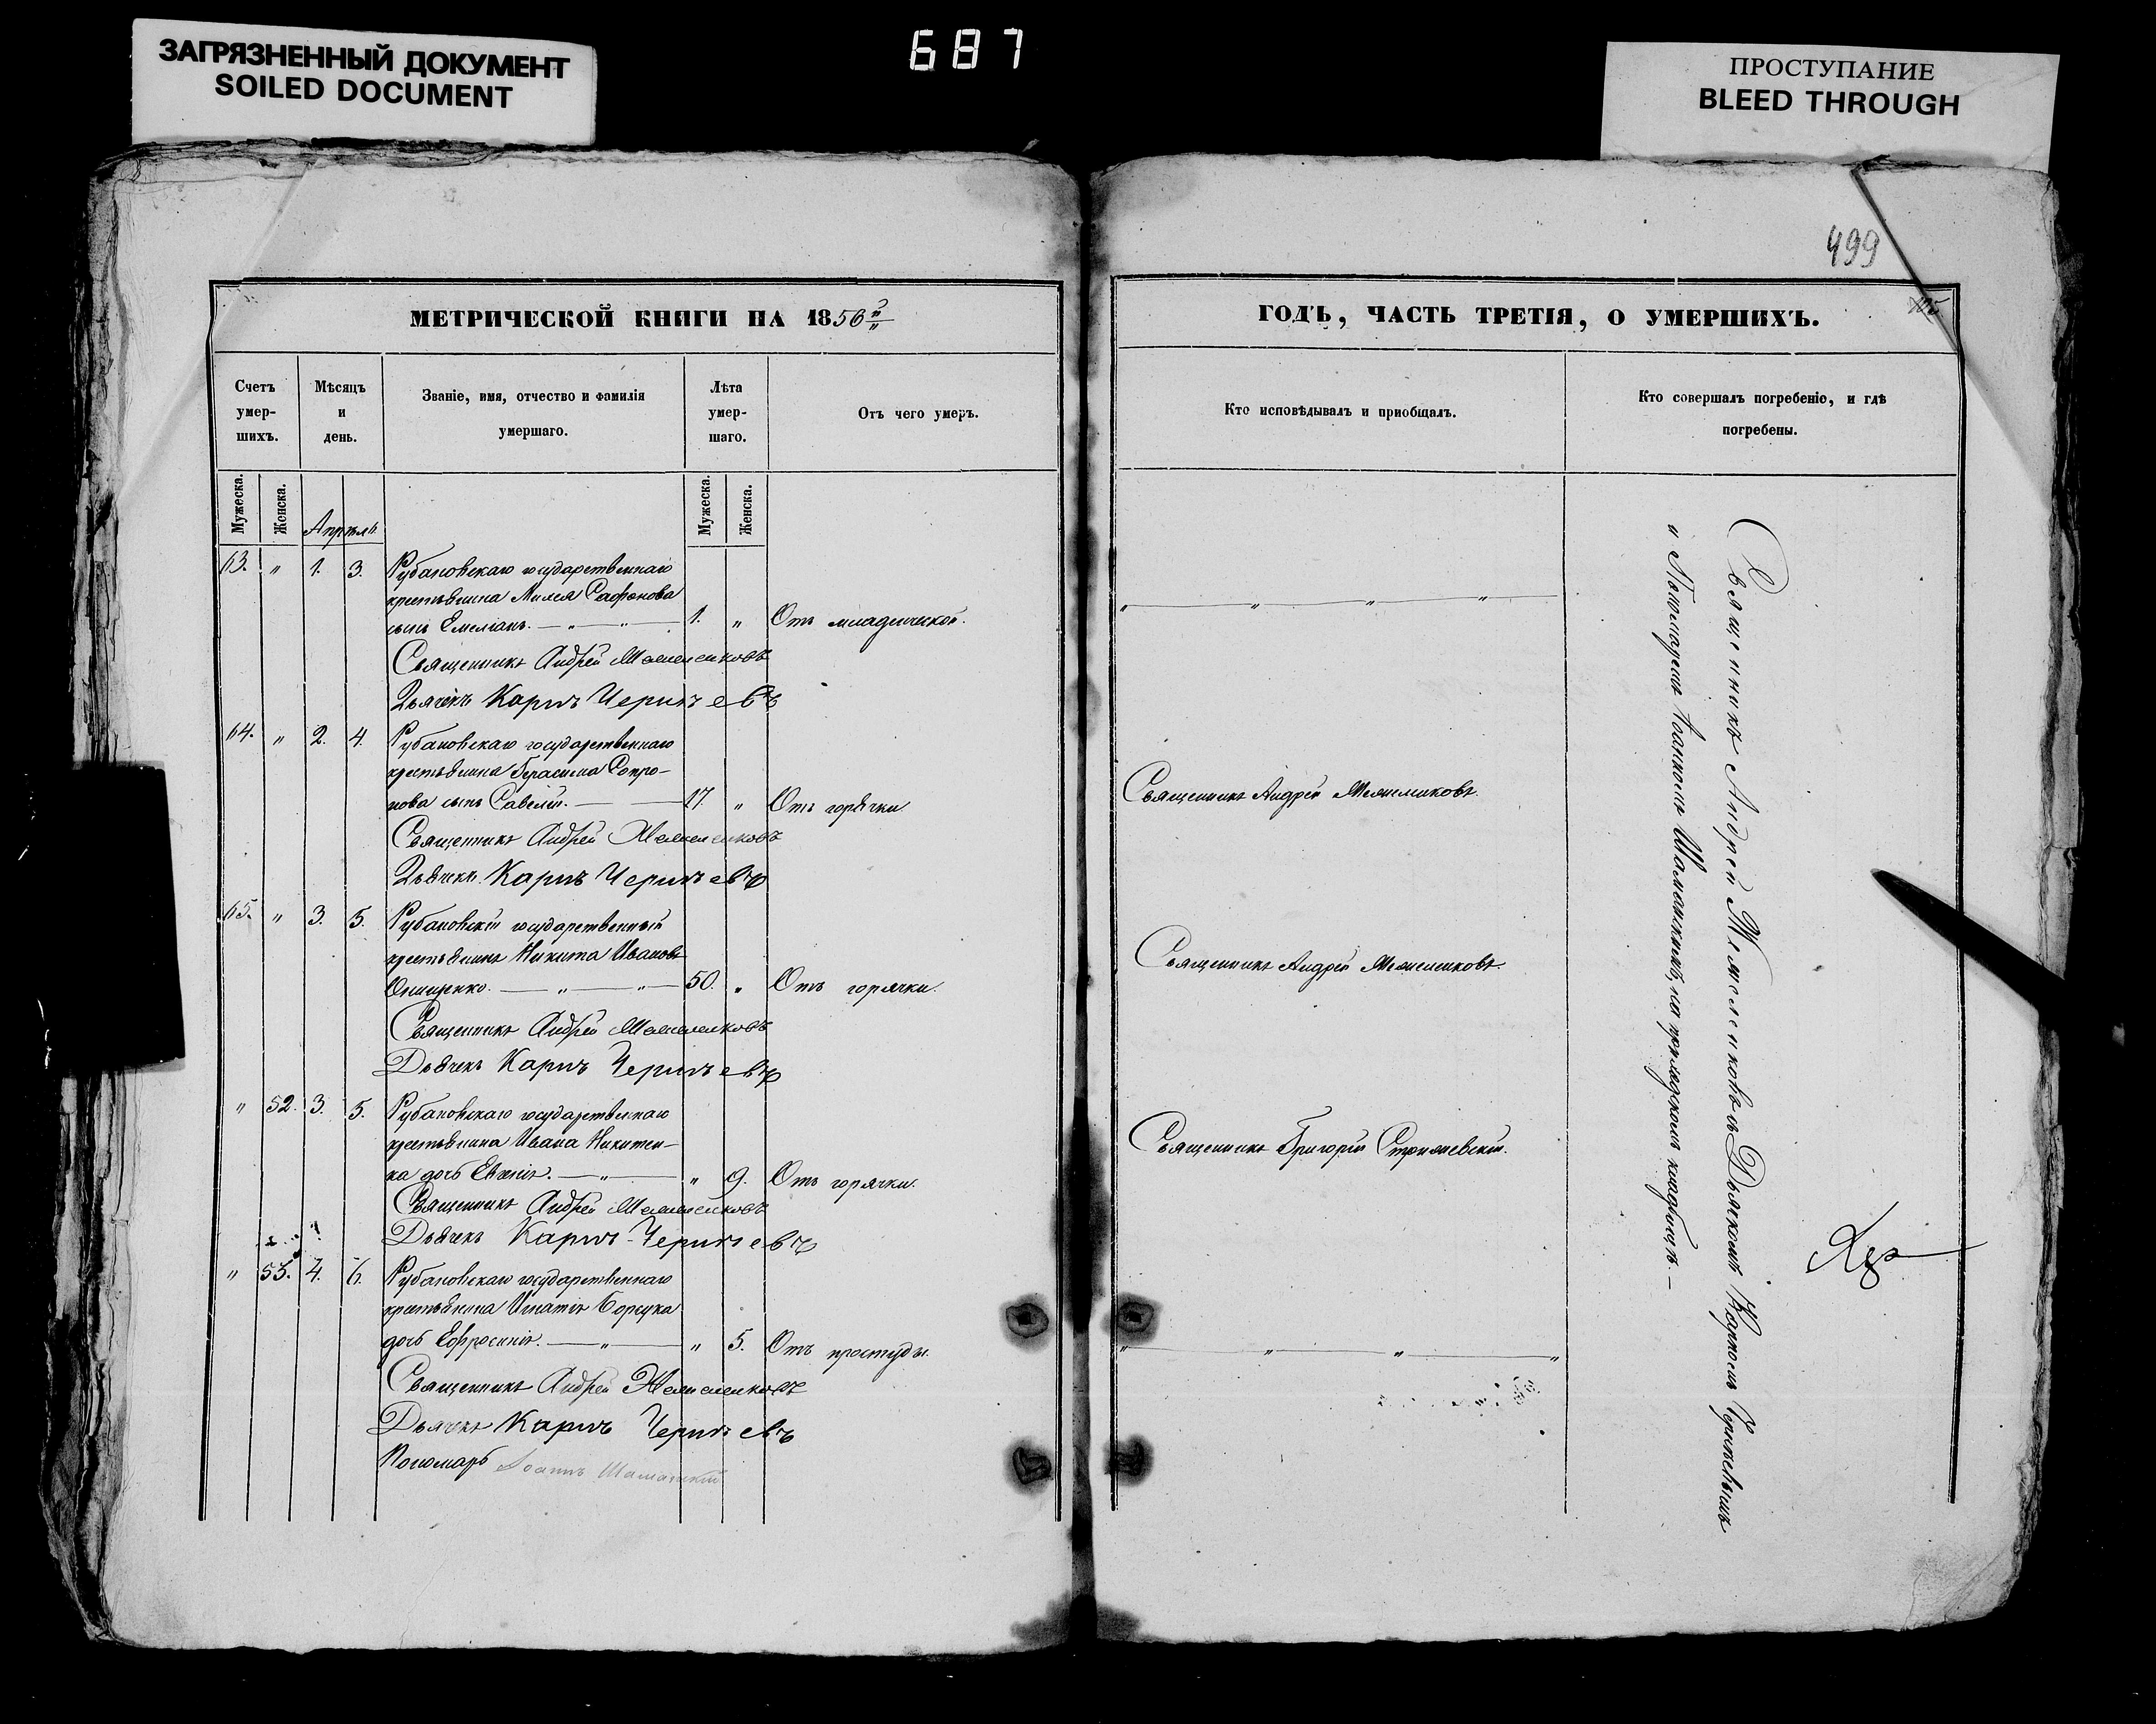 ЗАГРЯЗНЕННЫЙ ДОКУМЕНТ
SOILED DOCUMENT
687
ПРОСТУПАНИЕ
BLEED THROUGH
499
МЕТРИЧЕСКОЙ КНИГИ НА 1856й
Счетъ
умер-
шихъ.
Мѣсяцъ
и
день.
Званіе, имя, отчество и фамилія
умершаго.
Лѣта
умер-
шаго.
Отъ чего умеръ.
Мужеска.
Женска.
Апрѣль
Мужеска.
Женска.
63. " 1. 3. Рубановскаго государственнаго
крестьянина Сафонова
сынъ Емеліанъ. — " — " — 1. " Отъ младенческой.
Священникъ Андрей
Дьячекъ Карпъ
64. " 2. 4. Рубановскаго государственнаго
крестьянина Герасима Сопро-
нова сынъ Савелій. — 17. " Отъ горячки
Священникъ Андрей
Дьячекъ Карпъ
65. " 3. 5. Рубановскій государственный
крестьянинъ Никита Ивановъ
Онищенко. — " — " — 50. " Отъ горячки.
Священникъ Андрей
Дьячекъ Карпъ
" 52. 3. 5. Рубановскаго государственнаго
крестьянина Ивана Никитен-
ка дочь Евгенія. — " — " 9. Отъ горячки.
Священникъ Андрей
Дьячекъ Карпъ
" 53. 4. 6. Рубановскаго государственнаго
крестьянина Игнатія Борсука
дочь Ефросинія. — " — " 5. Отъ простуды.
Священникъ Андрей
Дьячекъ Карпъ
Пономарь Іоаннъ
ГОДЪ, ЧАСТЬ ТРЕТІЯ, О УМЕРШИХЪ.
105
Кто исповѣдывалъ и пріобщалъ.
Кто совершалъ погребеніе, и гдѣ
погребены.
" — " — " — " —
Священникъ Андрей
Священникъ Андрей
Священникъ Григорій
" — " — " — "
Священникъ Андрей съ Дьячкомъ Карпомъ
и Пономаремъ Іоанномъ на приходскомъ кладбищѣ. —